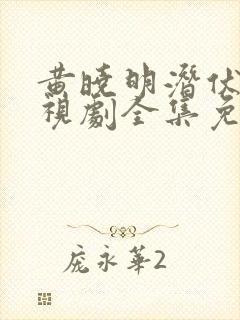 黄曉明潛伏
視劇全集免
庞永華2